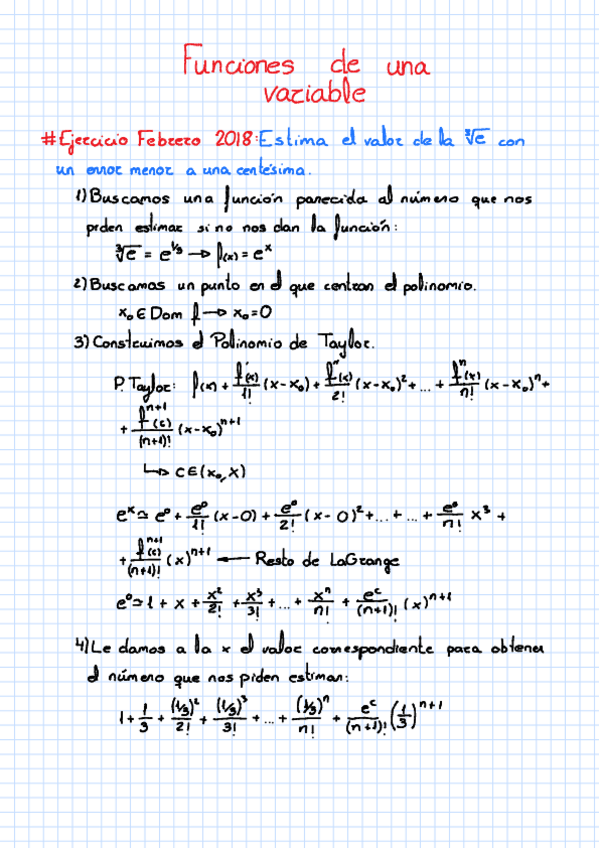 Funciones de una
variable
#Ejercicio Febrero 2018: Estima el valor de la ∛e con
un error menor a una centésima.
1) Buscamos una función parecida al número que nos
piden estimar si no nos dan la función:
∛e = e^(1/3) → f(x) = e^x
2) Buscamos un punto en el que centran el polinomio.
x₀ ∈ Dom f → x₀ = 0
3) Construimos el Polinomio de Taylor.
P. Taylor: f(x) + f'(x)/1! (x-x₀) + f''(x)/2! (x-x₀)² + ... + fⁿ(x)/n! (x-x₀)ⁿ +
+ f^(n+1)(c)/(n+1)! (x-x₀)^(n+1)
↳ C ∈ (x₀, x)
e^x ≃ e⁰ + e⁰/1! (x-0) + e⁰/2! (x-0)² + ... + ... + e⁰/n! x³ +
+ f^(n+1)(c)/(n+1)! (x)^(n+1) ← Resto de LaGrange
e⁰ ≃ 1 + x + x²/2! + x³/3! + ... + xⁿ/n! + e^c/(n+1)! (x)^(n+1)
4) Le damos a la x el valor correspondiente para obtener
el número que nos piden estimar:
1 + 1/3 + (1/3)²/2! + (1/3)³/3! + ... + (1/3)ⁿ/n! + e^c/(n+1)! (1/3)^(n+1)